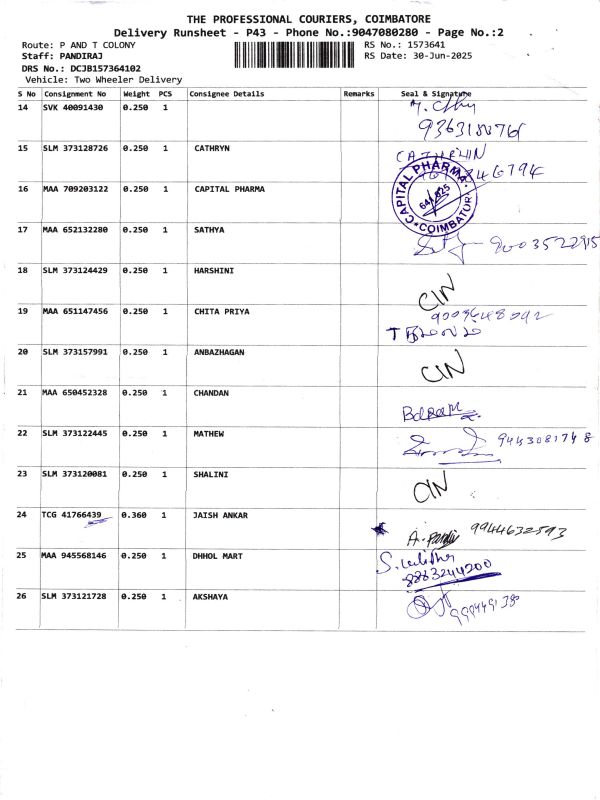 THE PROFESSIONAL COURIERS, COIMBATORE
Delivery Runsheet - P43 - Phone No.:9047080280 - Page No.:2
Route: P AND T COLONY RS No.: 1573641
Staff: PANDIRAJ RS Date: 30-Jun-2025
DRS No.: DCJB157364102
Vehicle: Two Wheeler Delivery
S No Consignment No Weight PCS Consignee Details Remarks Seal & Signature
14 SVK 40091430 0.250 1
15 SLM 373128726 0.250 1 CATHRYN
16 MAA 709203122 0.250 1 CAPITAL PHARMA CAPITAL PHARMA COIMBATORE
17 MAA 652132280 0.250 1 SATHYA
18 SLM 373124429 0.250 1 HARSHINI CIN
19 MAA 651147456 0.250 1 CHITA PRIYA
20 SLM 373157991 0.250 1 ANBAZHAGAN CIN
21 MAA 650452328 0.250 1 CHANDAN
22 SLM 373122445 0.250 1 MATHEW 9443081748
23 SLM 373120081 0.250 1 SHALINI CIN
24 TCG 41766439 0.360 1 JAISH ANKAR 9944632593
25 MAA 945568146 0.250 1 DHHOL MART
26 SLM 373121728 0.250 1 AKSHAYA